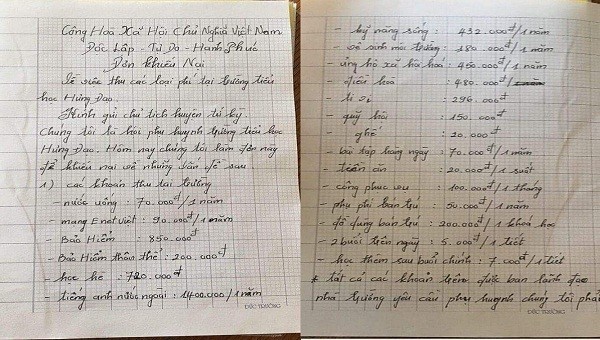 Công Hoà Xã Hội Chủ Nghĩa Việt Nam
Độc Lập - Tự Do - Hạnh Phúc
Đơn khiếu Nại
Về việc thu các loại phí tại trường tiểu
học Hưng Đạo.
Kính gửi chủ tịch huyện tứ kỳ.
Chúng tôi là hội phụ huynh trường tiểu học
Hưng Đạo. Hôm nay chúng tôi làm đơn này
để khiếu nại về những vấn đề sau
1) các khoản thu tại trường
- nước uống : 70.000đ/1 năm
- mạng Enet Việt : 90.000đ/1 năm
- Bảo Hiểm : 850.000đ
- Bảo Hiểm thân thể : 200.000đ
- học hè : 720.000đ
- tiếng anh nước ngoài : 1400.000/1 năm
ĐỨC TRƯỜNG
- kỹ năng sống : 432.000đ/1 năm
- vệ sinh môi trường : 180.000đ/1 năm
- ủng hộ xã hội hoá : 450.000đ/1 năm
- điều hoà : 480.000đ
- ti vi : 296.000đ
- quỹ hội : 150.000đ
- ghế : 20.000đ
- bài tập hàng ngày : 70.000đ/1 năm
- tiền ăn : 20.000đ/1 suất
- công phục vụ : 100.000đ/1 tháng
- phụ phí bán trú : 50.000đ/1 năm
- đồ dùng bán trú : 200.000đ/1 khoá học
- 2 buổi trên ngày : 5.000đ/1 tiết
- học thêm sau buổi chính : 7.000đ/1 tiết
* tất cả các khoản trên được ban lãnh đạo
nhà trường yêu cầu phụ huynh chúng tôi phải
ĐỨC TRƯỜNG